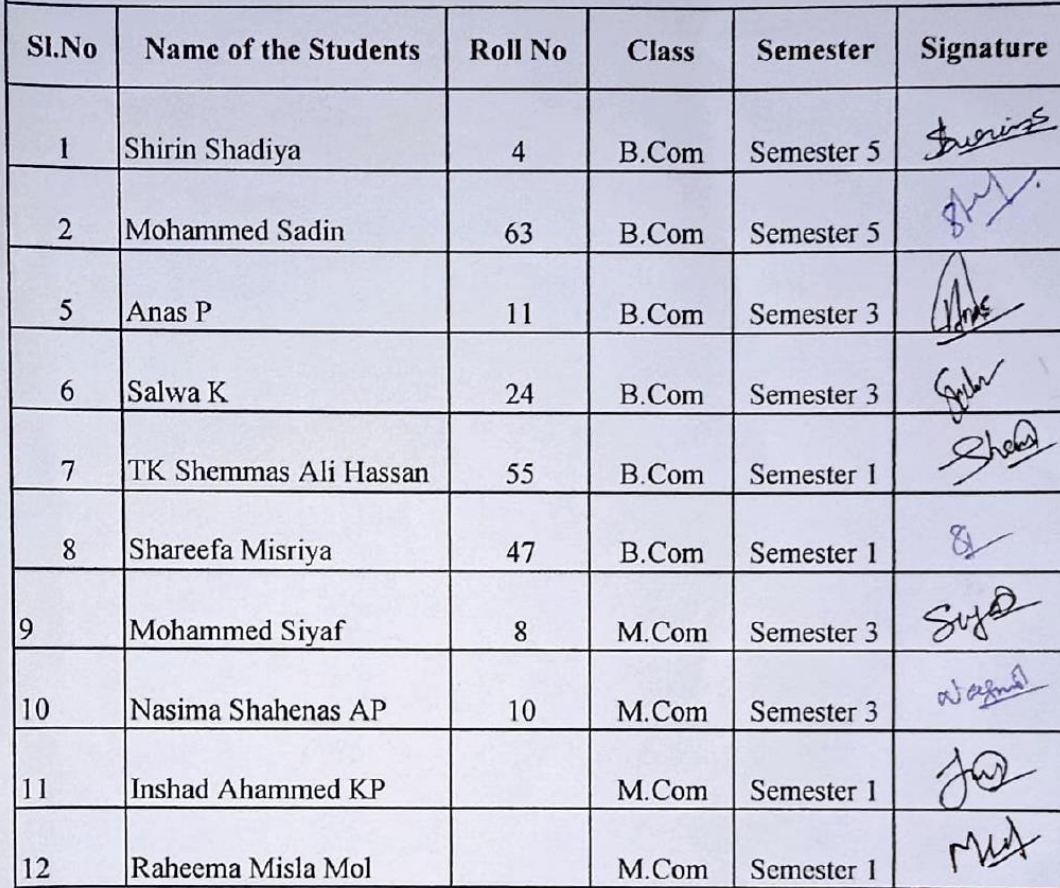 Sl.No Name of the Students Roll No Class Semester Signature
1 Shirin Shadiya 4 B.Com Semester 5
2 Mohammed Sadin 63 B.Com Semester 5
5 Anas P 11 B.Com Semester 3 Anas
6 Salwa K 24 B.Com Semester 3
7 TK Shemmas Ali Hassan 55 B.Com Semester 1
8 Shareefa Misriya 47 B.Com Semester 1
9 Mohammed Siyaf 8 M.Com Semester 3
10 Nasima Shahenas AP 10 M.Com Semester 3
11 Inshad Ahammed KP M.Com Semester 1
12 Raheema Misla Mol M.Com Semester 1